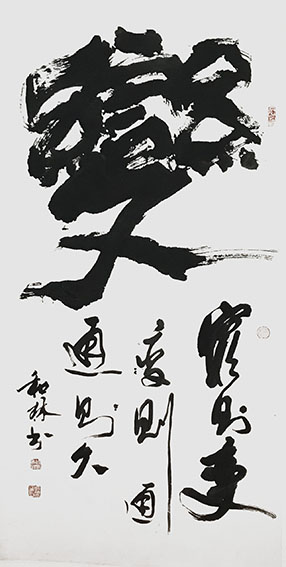 變
窮則変
変則通
通則久
和林书